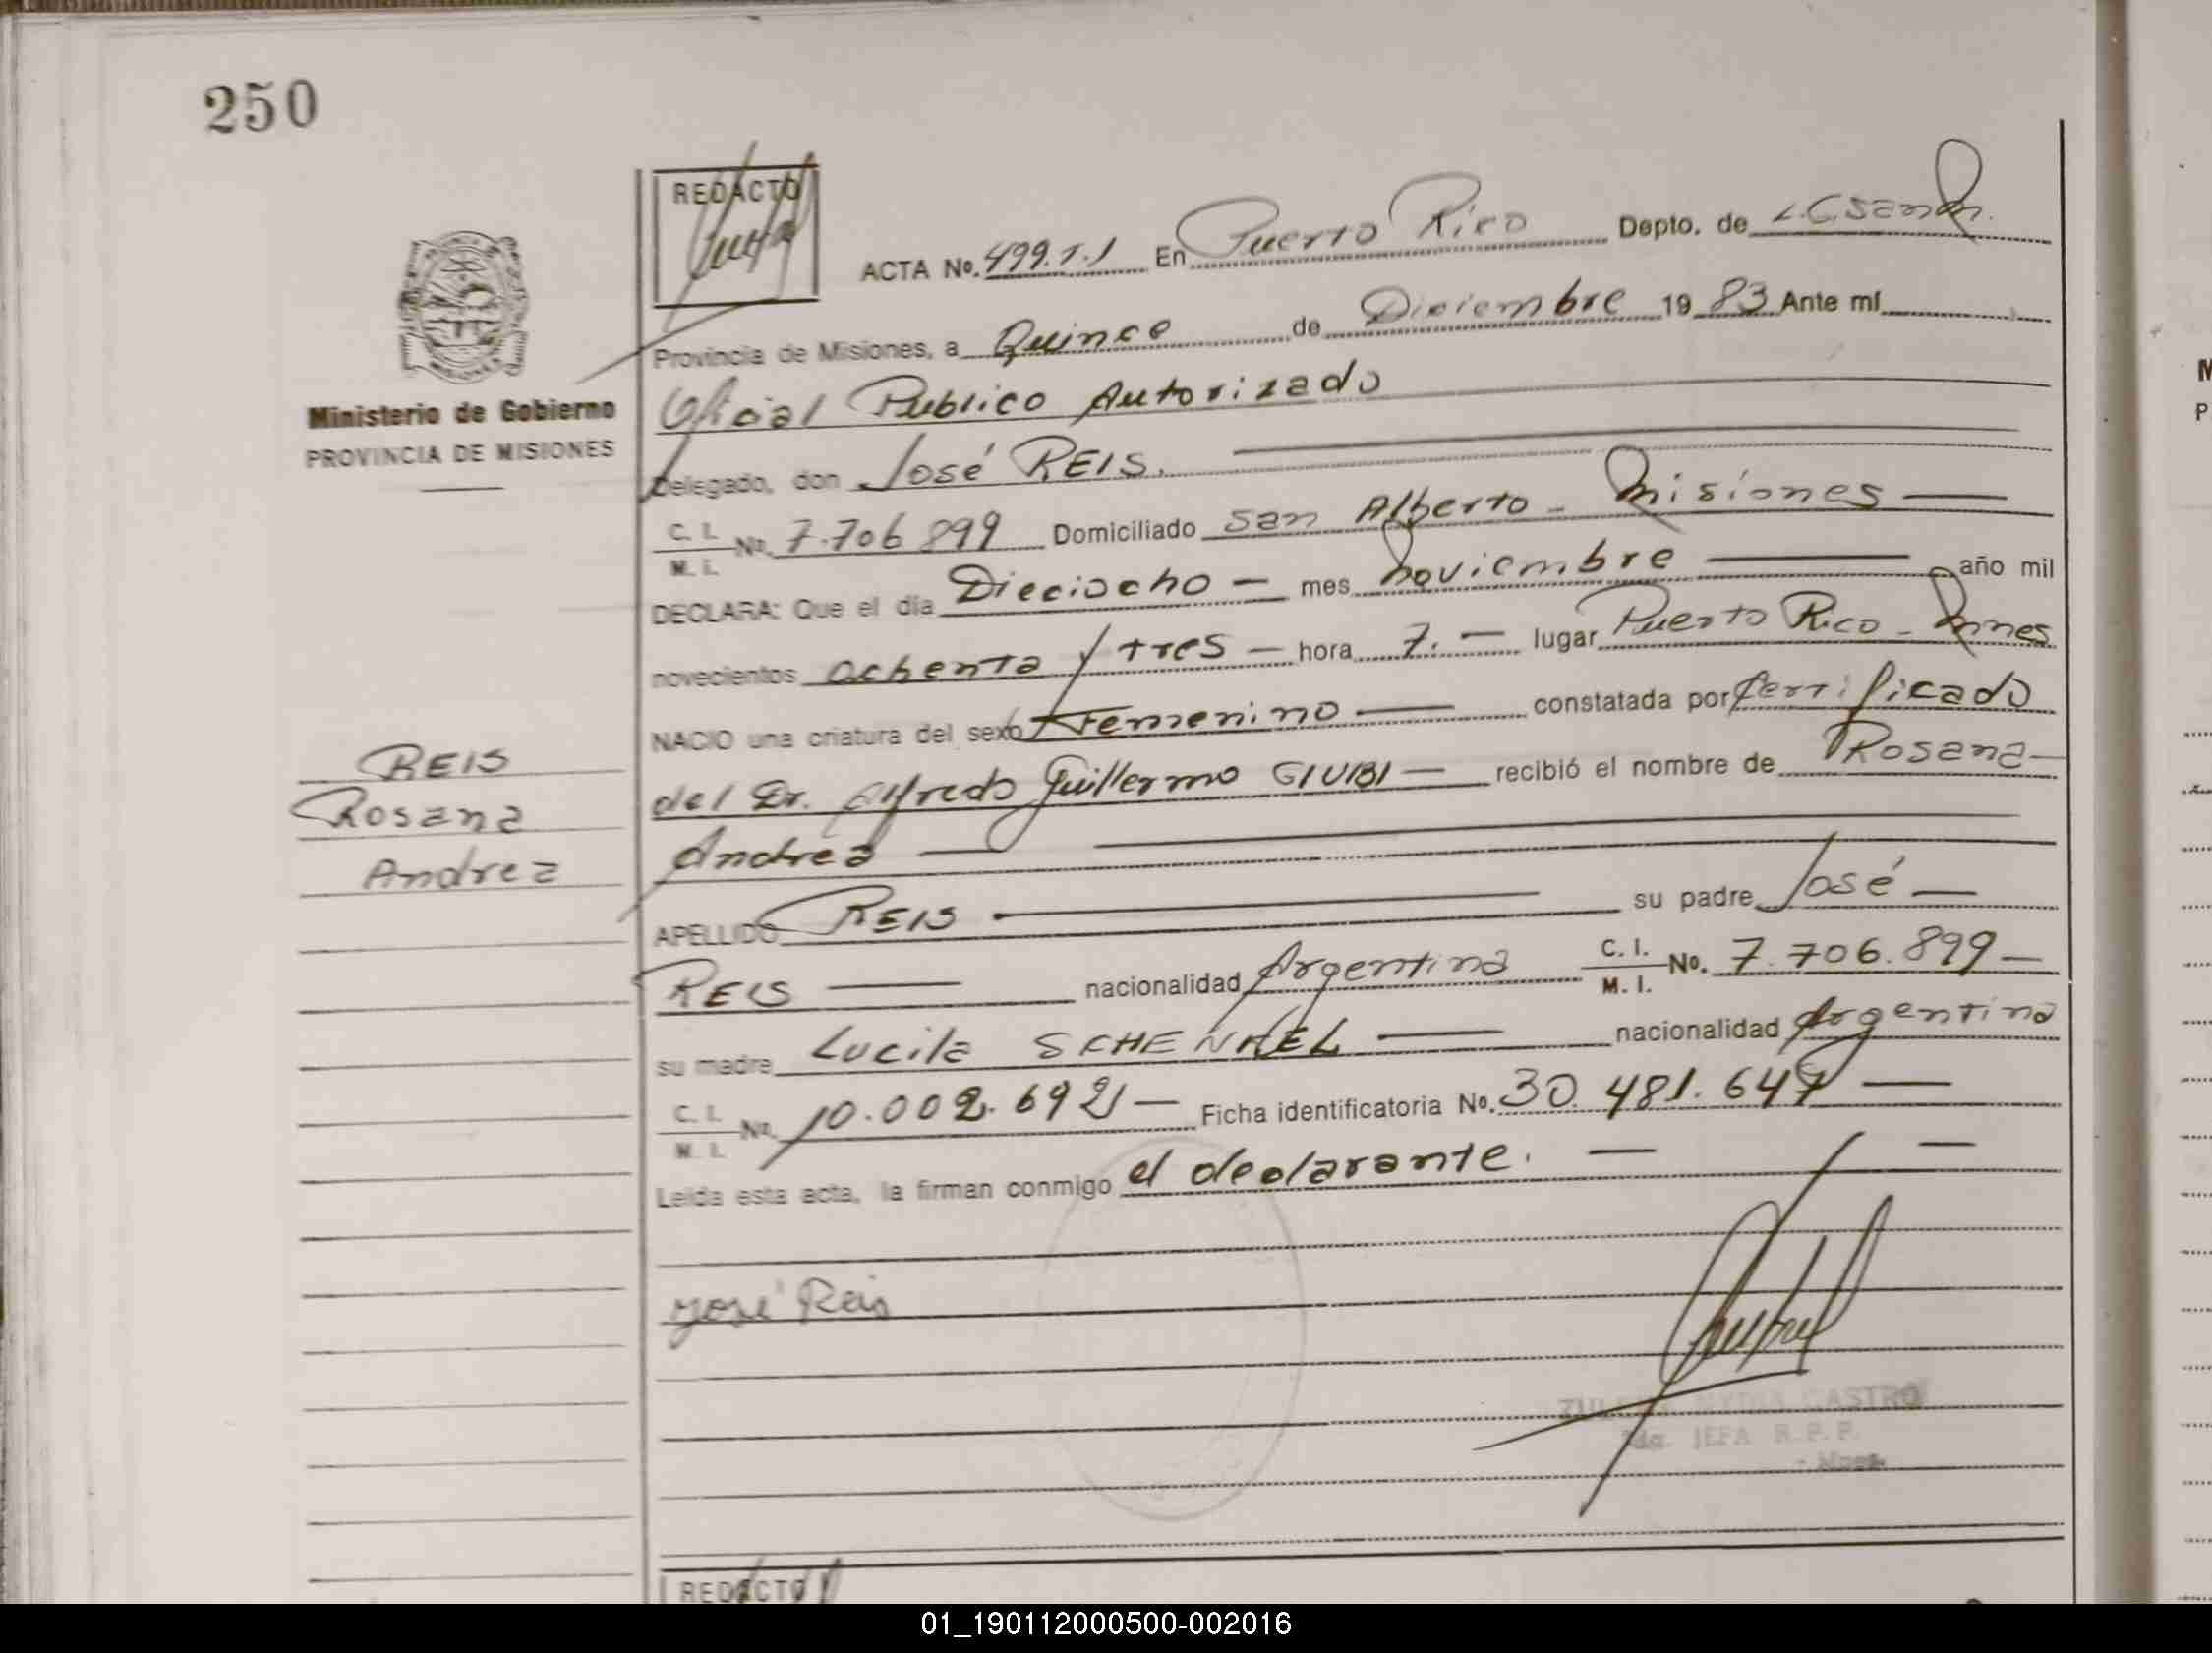 250
REDACTO
ACTA No. 499.T.I En Puerto Rico Depto. de L.G.San M.
Provincia de Misiones, a Quince de Diciembre 1983 Ante mí
Oficial Publico Autorizado
Ministerio de Gobierno
PROVINCIA DE MISIONES
Delegado, don José REIS.
C. I. M. I. No. 7.706 899 Domiciliado San Alberto - Misiones
DECLARA: Que el día Dieciocho — mes noviembre — año mil
novecientos ochenta y tres — hora 7. — lugar Puerto Rico - Mnes
NACIO una criatura del sexo Femenino — constatada por Certificado
del Dr. Alfredo Guillermo GIUBI — recibió el nombre de Rosana
Andrea
REIS
Rosana
Andrea
APELLIDO REIS — su padre José —
REIS — nacionalidad Argentina C. I. M. I. No. 7.706.899 —
su madre Lucila SCHENKEL — nacionalidad Argentina
C. I. M. I. No. 10.002.692 — Ficha identificatoria No. 30.481.647 —
Leída esta acta, la firman conmigo el declarante. — —
José Reis
CASTRO
JEFA R. P. P.
REDACTO
01_190112000500-002016